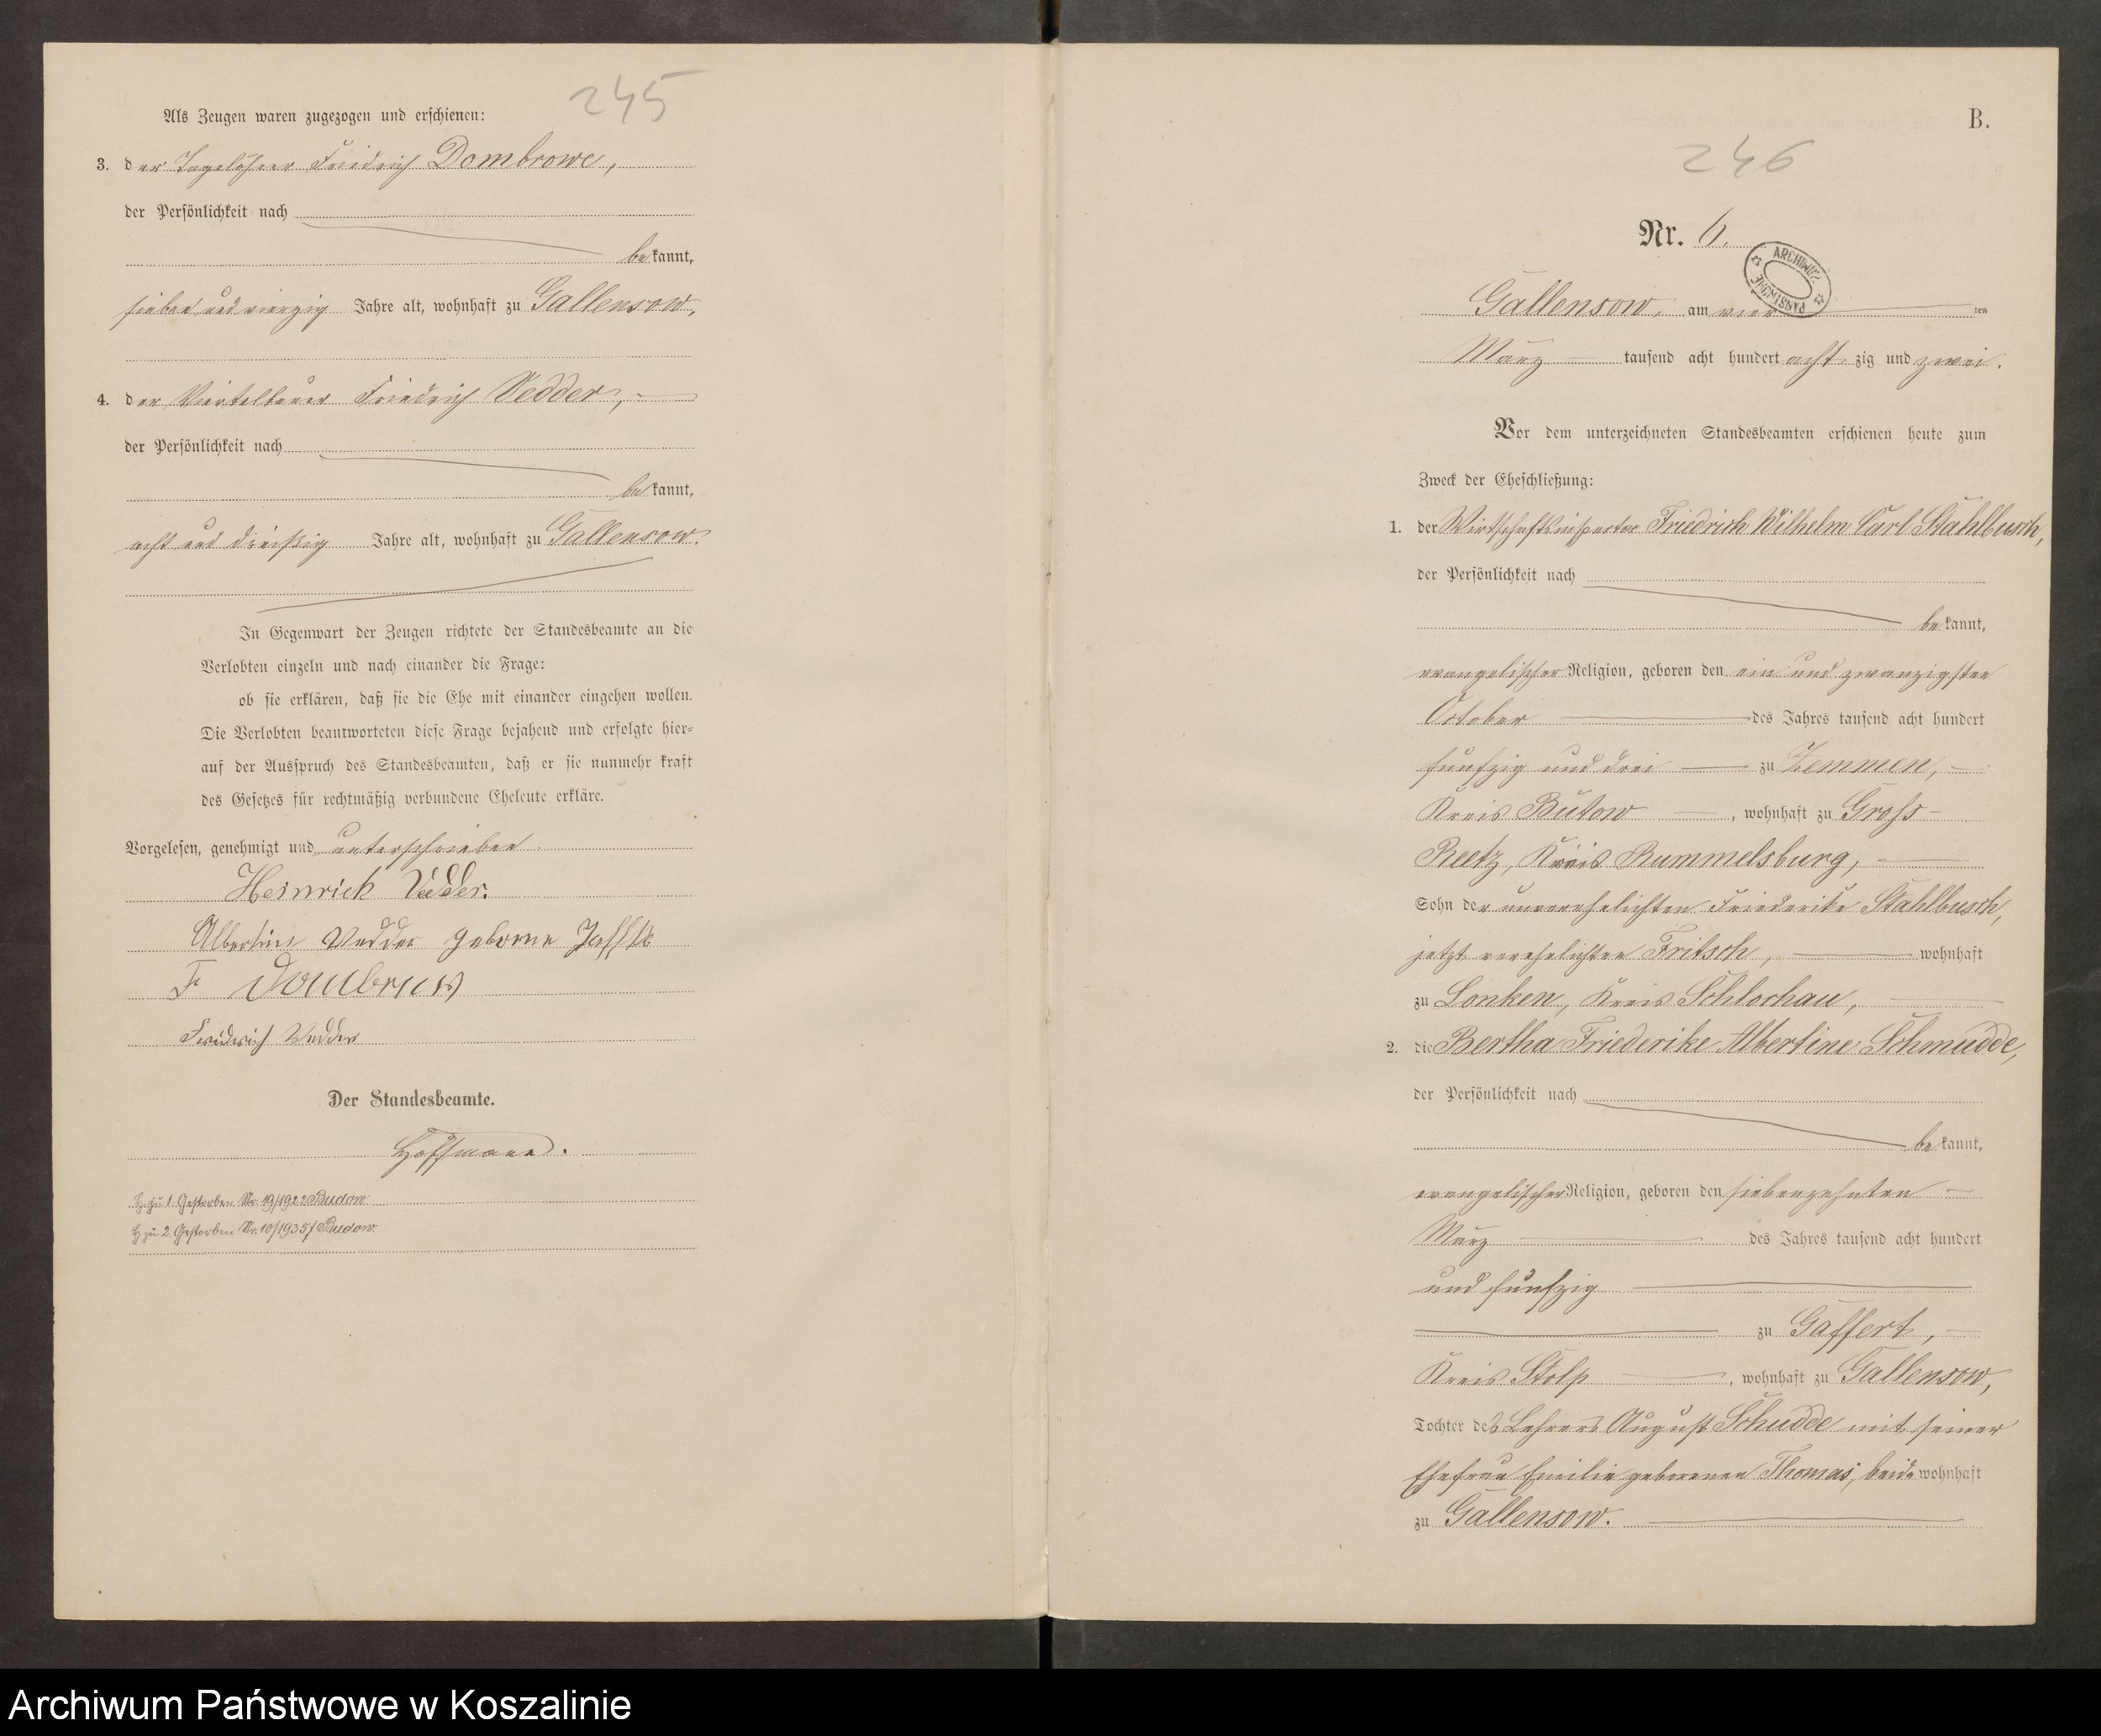 245
Als Zeugen waren zugezogen und erschienen:
3. der Tagelöhner Friedrich Dombrowe,
der Persönlichkeit nach
bekannt,
sieben und vierzig Jahre alt, wohnhaft zu Gallensow,
4. der Viertelbauer Friedrich Vedder,
der Persönlichkeit nach
bekannt,
acht und dreißig Jahre alt, wohnhaft zu Gallensow.
In Gegenwart der Zeugen richtete der Standesbeamte an die
Verlobten einzeln und nach einander die Frage:
ob sie erklären, daß sie die Ehe mit einander eingehen wollen.
Die Verlobten beantworteten diese Frage bejahend und erfolgte hier-
auf der Ausspruch des Standesbeamten, daß er sie nunmehr kraft
des Gesetzes für rechtmäßig verbundene Eheleute erkläre.
Vorgelesen, genehmigt und unterschrieben.
Heinrich Vedder.
Albertine Vedder geborne
F Dombrow
Friedrich Vedder
Der Standesbeamte.
Hoffmann.
H. zu 1. Gestorben Nr. 19/1922 Budow
H zu 2. Gestorben Nr. 10/1935/ Budow.
B.
246
Nr. 6.
ARCHIWUM PAŃSTWOWE
Gallensow, am vier ten
März tausend acht hundert acht zig und zwei.
Vor dem unterzeichneten Standesbeamten erschienen heute zum
Zweck der Eheschließung:
1. der Wirtschaftsinspector Friedrich Wilhelm Carl Stahlbusch,
der Persönlichkeit nach
bekannt,
evangelischer Religion, geboren den ein und zwanzigsten
October des Jahres tausend acht hundert
fünfzig und drei zu Zemmen,
Kreis Bütow, wohnhaft zu Gross-
Reetz, Kreis Rummelsburg,
Sohn der unverehelichten Friederike Stahlbusch,
jetzt verehelichten Fritsch, wohnhaft
zu Lonken, Kreis Schlochau,
2. die Bertha Friederike Albertine Schmudde,
der Persönlichkeit nach
bekannt,
evangelischer Religion, geboren den siebenzehnten
März des Jahres tausend acht hundert
und fünfzig
zu Gaffert,
Kreis Stolp, wohnhaft zu Gallensow,
Tochter des Lehrers August Schudde mit seiner
Ehefrau Emilie geborenen Thomas, beide wohnhaft
zu Gallensow.
Archiwum Państwowe w Koszalinie